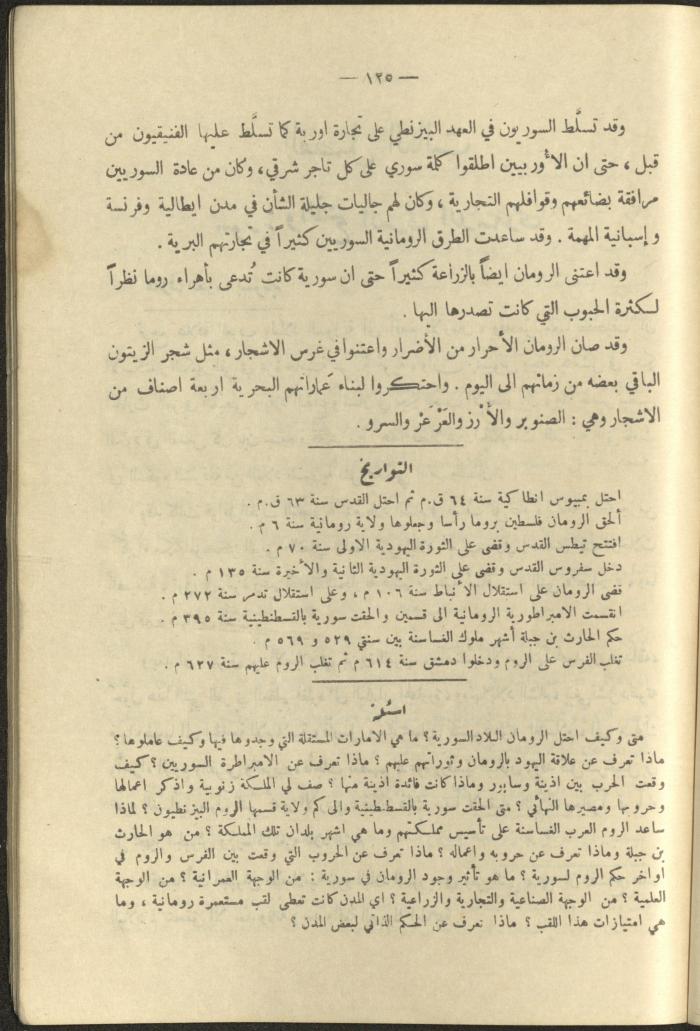 — ١٢٥ —
وقد تسلَّط السوريون في العهد البيزنطي على تجارة اوربة كما تسلَّط عليها الفنيقيون من
قبل ، حتى ان الأوربيين اطلقوا كلمة سوري على كل تاجر شرقي ، وكان من عادة السوريين
مرافقة بضائعهم وقوافلهم التجارية ، وكان لهم جاليات جليلة الشأن في مدن ايطالية وفرنسة
وإسبانية المهمة . وقد ساعدت الطرق الرومانية السوريين كثيراً في تجارتهم البرية .
وقد اعتنى الرومان ايضاً بالزراعة كثيراً حتى ان سورية كانت تُدعى بأهراء روما نظراً
لكثرة الحبوب التي كانت تصدرها اليها .
وقد صان الرومان الأحراز من الأضرار واعتنوا في غرس الاشجار ، مثل شجر الزيتون
الباقي بعضه من زمانهم الى اليوم . واحتكروا لبناء عَماراتهم البحرية اربعة اصناف من
الاشجار وهي : الصنوبر والأرْز والعَرْعَر والسرو .
التواريخ
احتل بمبيوس انطاكية سنة ٦٤ ق.م ثم احتل القدس سنة ٦٣ ق.م .
ألحق الرومان فلسطين بروما رأسا وجعلوها ولاية رومانية سنة ٦ م .
افتتح تيطس القدس وقضى على الثورة اليهودية الاولى سنة ٧٠ م .
دخل سفروس القدس وقضى على الثورة اليهودية الثانية والأخيرة سنة ١٣٥ م .
قضى الرومان على استقلال الأنباط سنة ١٠٦ م ، وعلى استقلال تدمر سنة ٢٧٢ م .
انقسمت الامبراطورية الرومانية الى قسمين والحقت سورية بالقسطنطينية سنة ٣٩٥ م .
حكم الحارث بن جبلة أشهر ملوك الغساسنة بين سنتي ٥٢٩ و ٥٦٩ م .
تغلب الفرس على الروم ودخلوا دمشق سنة ٦١٤ م ثم تغلب الروم عليهم سنة ٦٢٧ م .
اسئلة
متى وكيف احتل الرومان البلاد السورية ؟ ما هي الامارات المستقلة التي وجدوها فيها وكيف عاملوها ؟
ماذا تعرف عن علاقة اليهود بالرومان وثوراتهم عليهم ؟ ماذا تعرف عن الامبراطرة السوريين ؟ كيف
وقعت الحرب بين اذينة وسابور وماذا كانت فائدة اذينة منها ؟ صف لي الملكة زنوبية واذكر اعمالها
وحروبها ومصيرها النهائي ؟ متى الحقت سورية بالقسطنطينية والى كم ولاية قسمها الروم البيزنطيون ؟ لماذا
ساعد الروم العرب الغساسنة على تأسيس مملكتهم وما هي اشهر بلدان تلك المملكة ؟ من هو الحارث
بن جبلة وماذا تعرف عن حروبه واعماله ؟ ماذا تعرف عن الحروب التي وقعت بين الفرس والروم في
اواخر حكم الروم لسورية ؟ ما هو تأثير وجود الرومان في سورية : من الوجهة العمرانية ؟ من الوجهة
العلمية ؟ من الوجهة الصناعية والتجارية والزراعية ؟ اي المدن كانت تعطى لقب مستعمرة رومانية ، وما
هي امتيازات هذا اللقب ؟ ماذا تعرف عن الحكم الذاتي لبعض المدن ؟